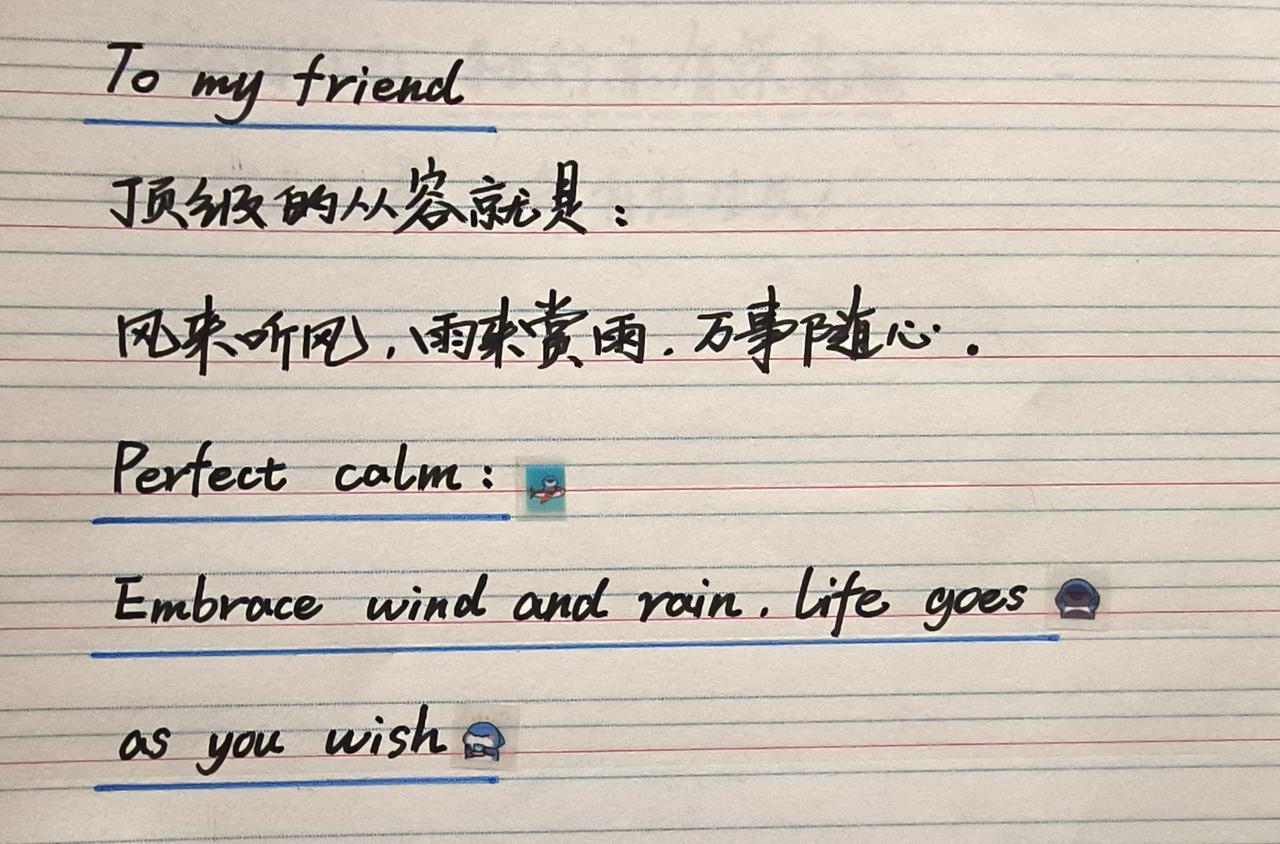 To my friend
顶级的从容就是：
风来听风，雨来赏雨．万事随心．
Perfect calm:
Embrace wind and rain. life goes
as you wish